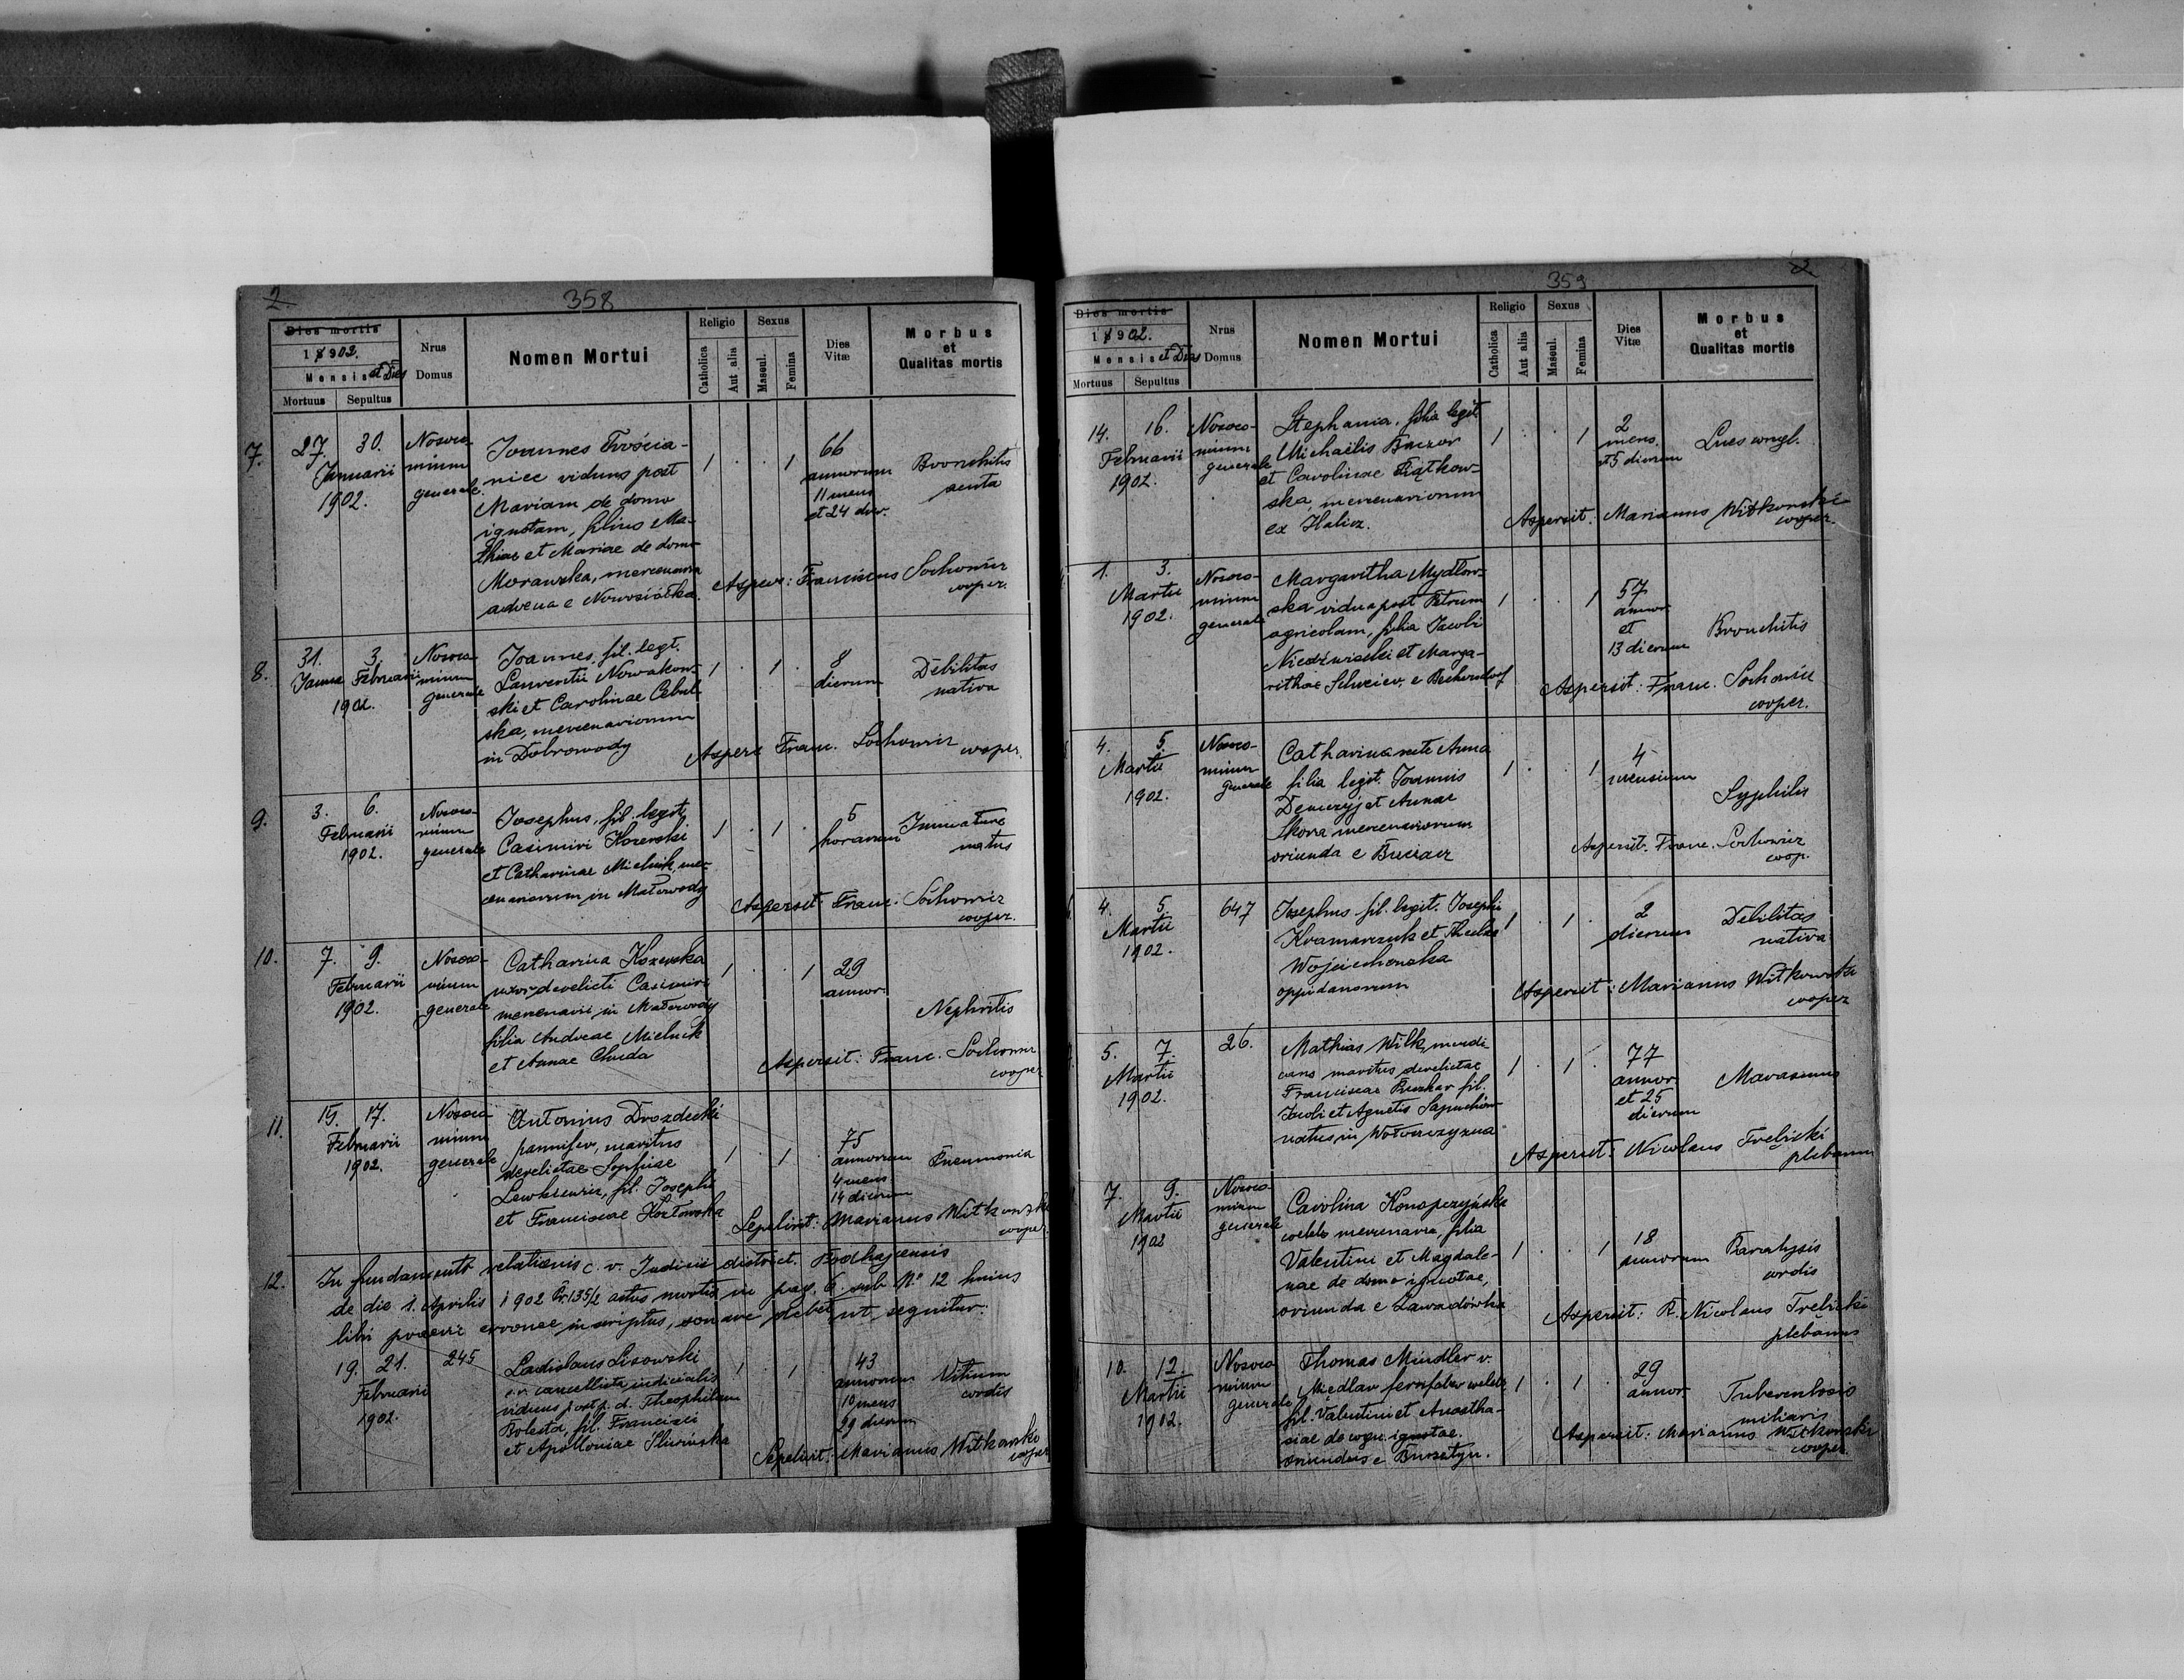 2
358
Dies mortis
1902.
Mensis et Dies
Mortuus Sepultus
Nrus Domus
Nomen Mortui
Religio
Catholica
Aut alia
Sexus
Mascul.
Femina
Dies Vitæ
Morbus
et
Qualitas mortis
7. 27. 30.
Januarii
1902.
Nosoco-
mium
generale
Joannes
viduus post
Mariam de domo
ignotam, filius Ma-
thiae et Mariae de domo
Morawska, mercenaria
advena e Nowosiółka.
1 . . 1
66
annorum
11 mens
et 24 dier.
Bronchitis
acuta
Aspers: Franciscus Sochowicz
cooper.
8. 31. 3.
Januar Februarii
1902.
Nosoco-
mium
generale
Joannes, fil. legt.
Laurentii Nowakow-
ski et Carolinae Cebul-
ska, mercenariorum
in Dobrowody
1 . 1 .
8
dierum
Debilitas
nativa
Aspers Franc. Sochowicz cooper.
9. 3. 6.
Februarii
1902.
Nosoco-
mium
generale
Josephus, fil. legit.
Casimiri Kozewski
et Catharinae Mielnik, mer-
cenariorum in Małowody
1 . 1 .
5
horarum
Immature
natus
Aspersit Franc. Sochowicz
cooper.
10. 7. 9.
Februarii
1902.
Nosoco-
mium
generale
Catharina Kozewska
uxor derelicti Casimiri
mercenarii in Małowody
filia Andreae Mielnik
et Annae Chuda
1 . . 1
29
annor.
Nephritis
Aspersit: Franc. Sochowicz
cooper.
11. 15. 17.
Februarii
1902.
Nosoco
mium
generale
Antonius Drozdecki
pannifex, maritus
derelictae Sophiae
Lewkiewicz, fil. Josephi
et Franciscae Kozłowska
1 . 1
75
annorum
4 mens
14 dierum
Pneumonia
Sepelivit: Marianus Witkowski
cooper.
12. In fundamento relationis c. r. Judicii district. Podhajcensis
de die 1. Aprilis 1902 Pr. 135/2 actus mortis in pag. 6 sub No 12 huius
libri praeni erronee inscriptus, sonare debet ut seguitur:
19. 21.
Februarii
1902.
245
Ladislaus Lisowski
c.r. cancellista judicialis
viduus post p. d. Theophilam
Bolesta, fil. Francisci
et Apolloniae Śliwińska
1 . 1
43
annorum
10 mens
29 dierum
Vitium
cordis
Sepelivit: Marianus Witkowski
cooper
3
359
Dies mortis
1902.
Mensis et Dies
Mortuus Sepultus
Nrus
Domus
Nomen Mortui
Religio
Catholica
Aut alia
Sexus
Mascul.
Femina
Dies
Vitæ
Morbus
et
Qualitas mortis
14. 16.
Februarii
1902.
Nosoco-
mium
generale
Stephania, filia legit.
Michaelis
et Carolinae Piątkow-
ska, mercenariorum
ex Halicz.
1 . . 1
2
mens.
et 5 dierum
Lues congl.
Aspersit: Marianus Witkowski
cooper.
1. 3.
Martii
1902.
Nosoco-
mium
generale
Margaritha Mydłow-
ska vidua post Petrum
agricolam, filia Jacobi
Niedźwiecki et Marga-
rithae e Beckersdorf
1 . . 1
57
annor.
et
13 dierum
Bronchitis
Aspersit: Franc. Sochowicz
cooper.
4. 5.
Martii
1902.
Nosoco-
mium
generale
Catharina recte Anna
filia legit. Joannis
et Annae
Skora mercenariorum
oriunda e
1 . . 1
4
mensium
Syphilis
Aspersit. Franc. Sochowicz
coop.
4. 5.
Martii
1902.
647
Josephus fil. legit. Josephi
Kramarczuk et Theclae
Wojciechowska
oppidanorum
1 . 1 .
2
dierum
Debilitas
nativa
Aspersit: Marianus Witkowski
cooper
5. 7.
Martii
1902.
26.
Mathias Wilk, mendi-
cans maritus derelictae
Franciscae fil.
Jacobi et Agnetis
natus in Wołoszczyzna
1 . 1 .
77
annor.
et 25
dierum
Marasmus
Aspersit: Nicolaus Trebicki
plebanus
7. 9.
Martii
1902
Nosoco-
mium
generale
Carolina Konopczyńska
coelebs mercenaria, filia
Valentini et Magdale-
nae de domo ignotae,
oriunda e Zawadówka
1 . . 1
18
annorum
Paralysis
cordis
Aspersit: R. Nicolaus Trebicki
plebanus
10. 12
Martii
1902.
Nosoco
mium
generale
Thomas Mindler v.
Miedlar coelebs
fil. Valentini et Anastha-
siae de cogn. ignotae.
oriundus e Bursztyn.
1 . 1 .
29
annor.
Tuberculosis
miliaris
Aspersit: Marianus Witkowski
cooper.